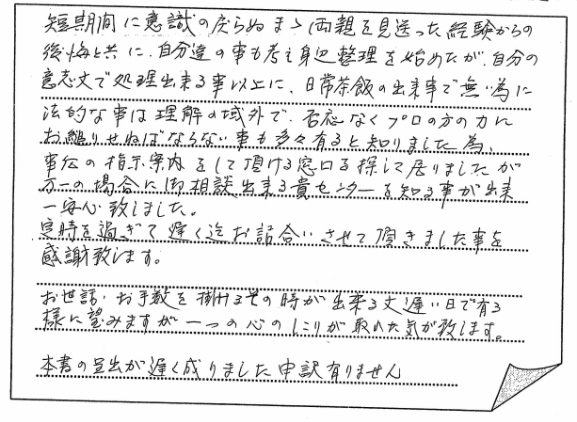 短期間に意識の戻らぬまゝ両親を見送った経験からの
後悔と共に、自分達の事も考え身辺整理を始めたが、自分の
意志丈で処理出来る事以上に、日常茶飯の出来事で無い為に
法的な事は理解の域外で、否応なくプロの方の力に
お縋りせねばならない事も多々有ると知りました為、
事伝の指示案内をして頂ける窓口を探して居りましたが
万一の場合に御相談出来る貴センターを知る事が出来
一安心致しました。
定時を過ぎて遅く迄お話合いさせて頂きました事を
感謝致します。
お世話・お手数を掛けるその時が出来る丈遅い日で有る
様に望みますが一つの心のしこりが取れた気が致します。
本書の呈出が遅く成りました申訳有りません